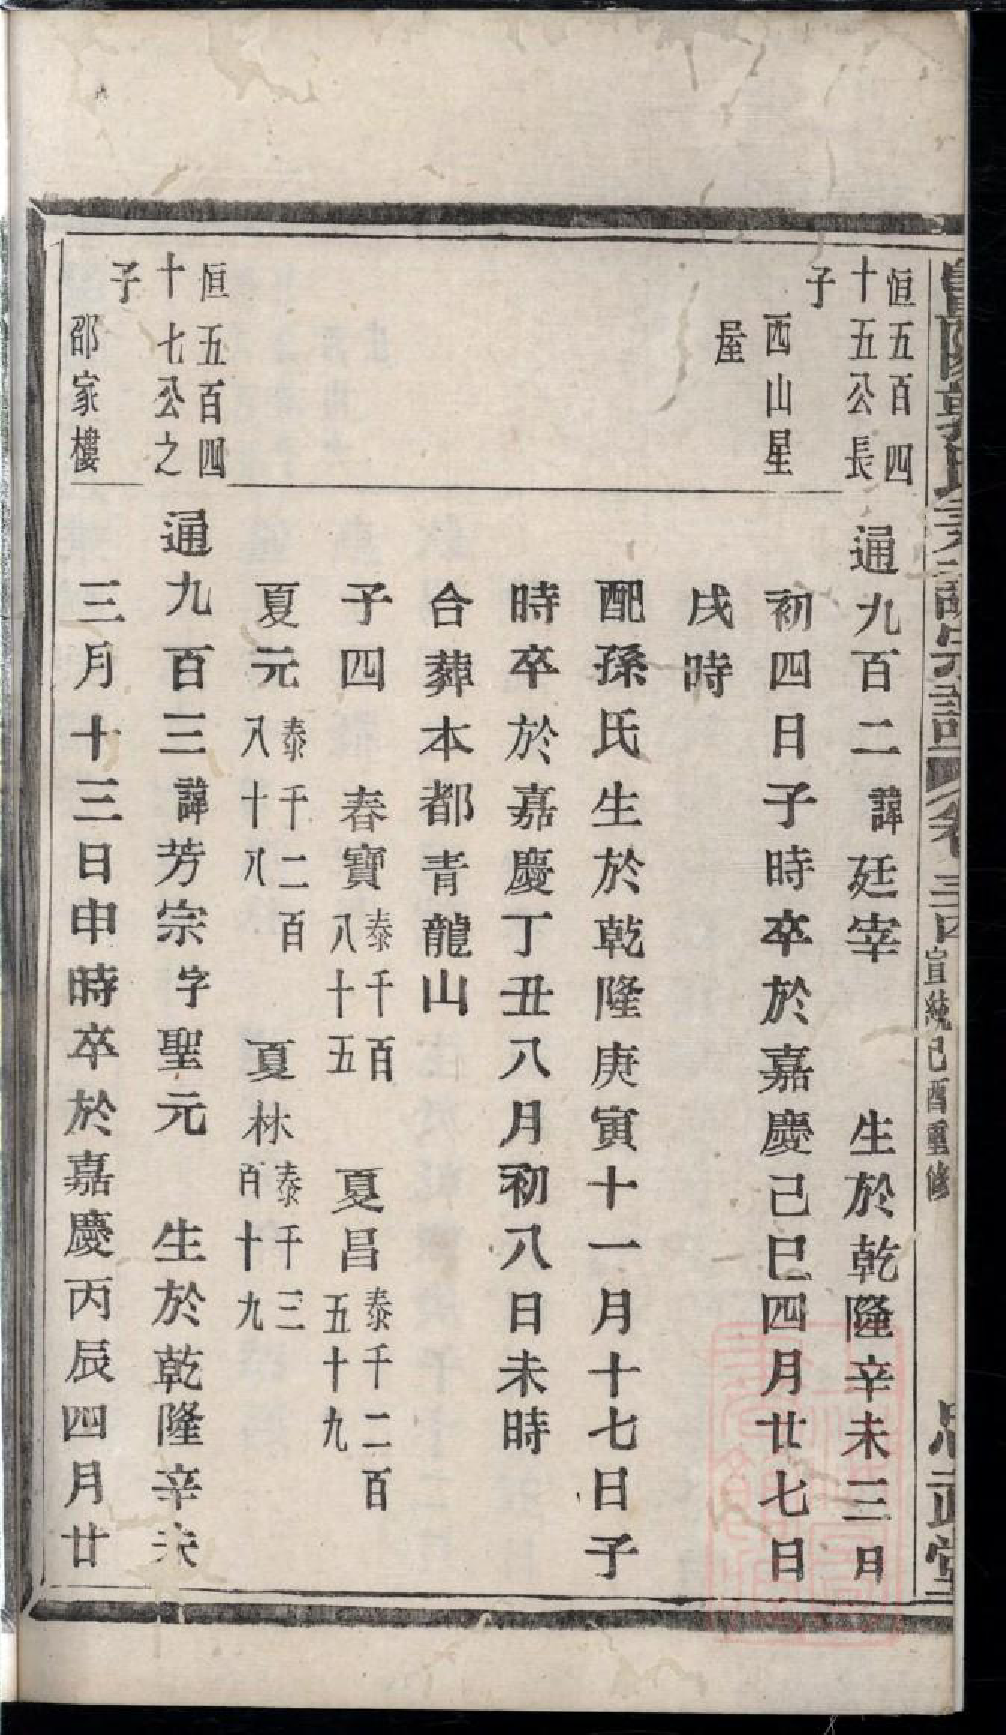 宣統己酉重修
恒五百四
十五公長
子
西山星
屋
通九百二諱廷宰 生於乾隆辛未三月
初四日子時卒於嘉慶己巳四月廿七日
戌時
配孫氏生於乾隆庚寅十一月十七日子
時卒於嘉慶丁丑八月初八日未時
合葬本都青龍山
子四 春寶泰千百八十五 夏昌泰千二百五十九
夏元泰千二百八十八 夏林泰千三百十九
恒五百四
十七公之
子
邵家樓
通九百三諱芳宗字聖元 生於乾隆辛未
三月十三日申時卒於嘉慶丙辰四月廿